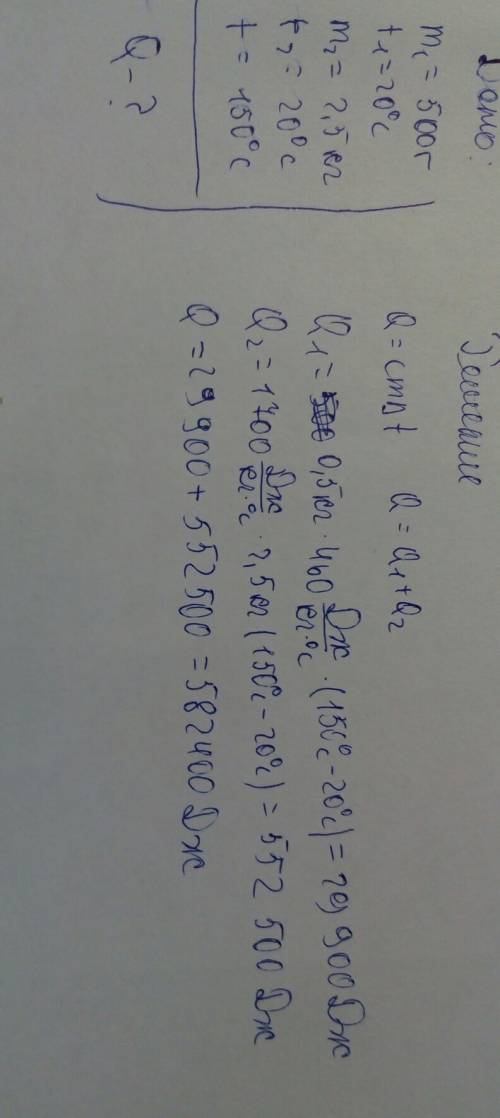 Дано:
m₁ = 500г
t₁ = 20°C
m₂ = 2,5 кг
t₂ = 20°C
t = 150°C
Q - ?
Решение
Q = cmΔt Q = Q₁ + Q₂
Q₁ = 0,5 кг · 460 Дж/кг·°C · (150°C - 20°C) = 29 900 Дж
Q₂ = 1700 Дж/кг·°C · 2,5 кг (150°C - 20°C) = 552 500 Дж
Q = 29 900 + 552 500 = 582400 Дж